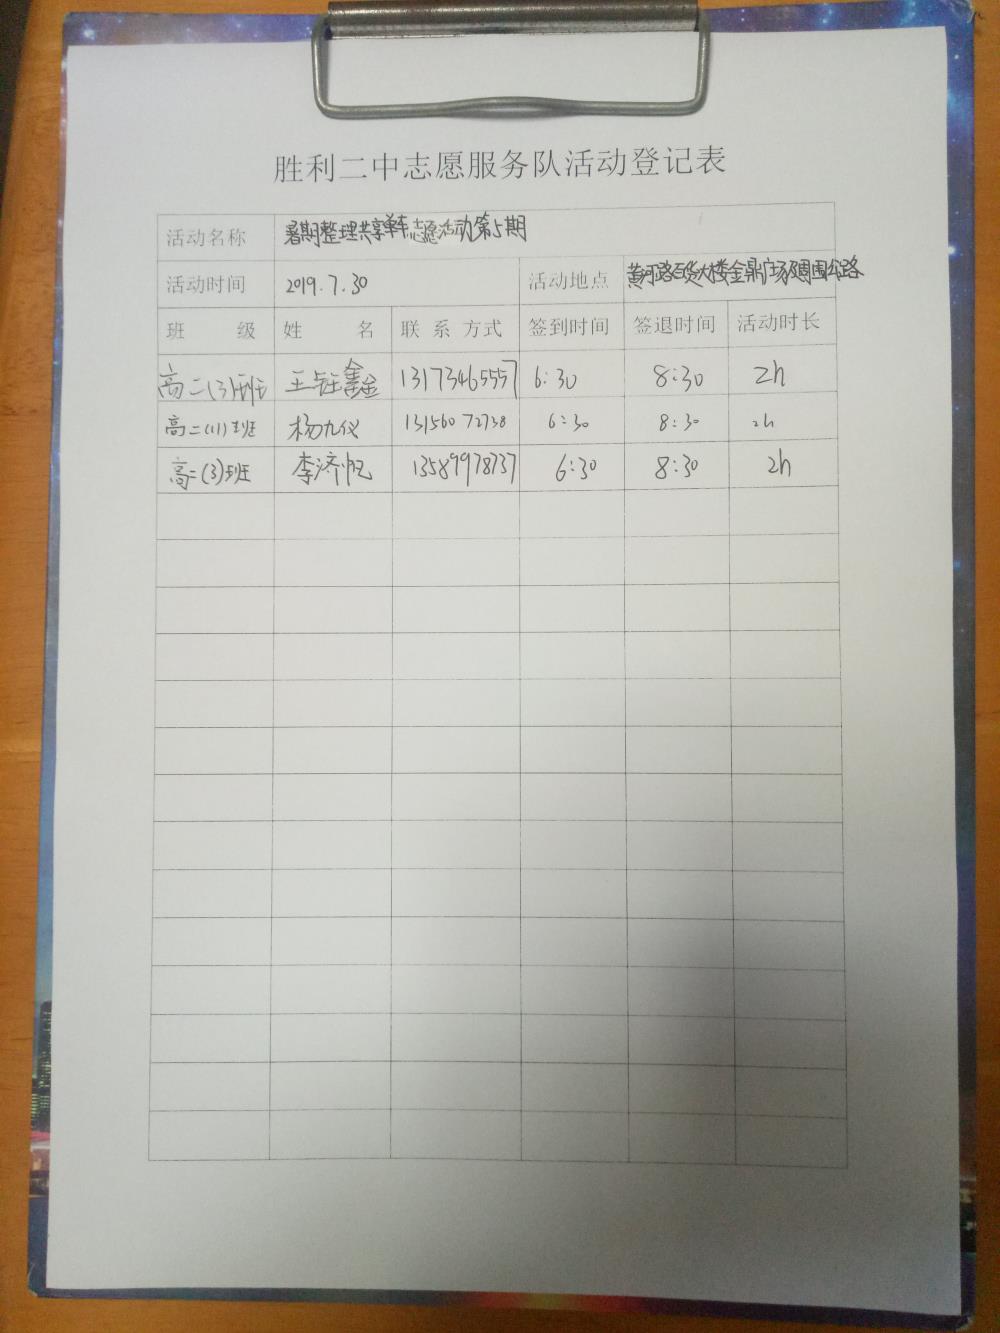 胜利二中志愿服务队活动登记表
活动名称 暑期整理共享单车志愿活动第5期
活动时间 2019.7.30 活动地点 黄河路百货大楼金鼎广场及周围公路
班 级 姓 名 联系方式 签到时间 签退时间 活动时长
高二(3)班 王钰鑫 13173465557 6:30 8:30 2h
高二(11)班 杨九仪 13156072738 6:30 8:30 2h
高二(3)班 李济帆 13589978737 6:30 8:30 2h